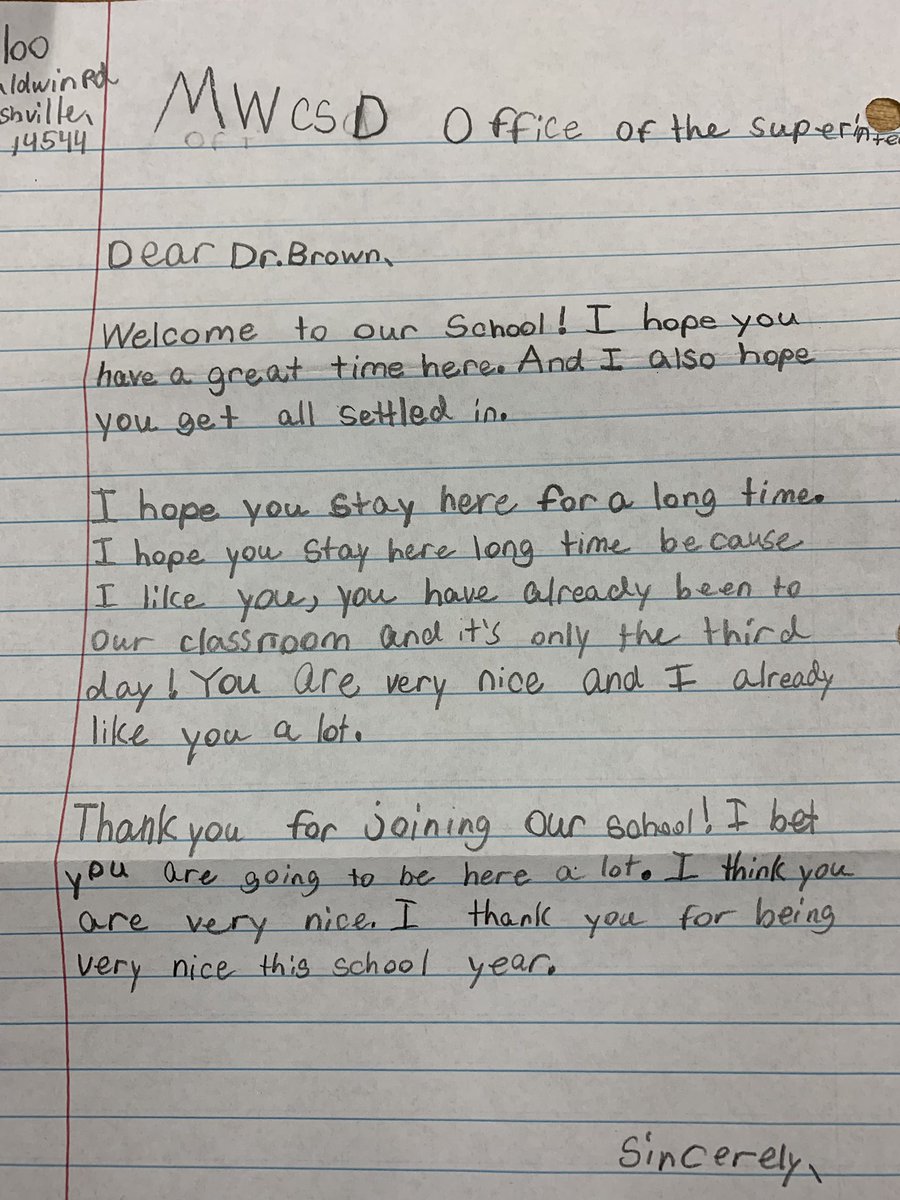 100
aldwin Rd
shville,
14544
MWCSD Office of the superinte
Dear Dr. Brown,
Welcome to our School! I hope you
have a great time here. And I also hope
you get all settled in.
I hope you stay here for a long time.
I hope you stay here long time because
I like you, you have already been to
our classroom and it's only the third
day! You are very nice and I already
like you a lot.
Thank you for joining our school! I bet
you are going to be here a lot. I think you
are very nice. I thank you for being
very nice this school year.
Sincerely,